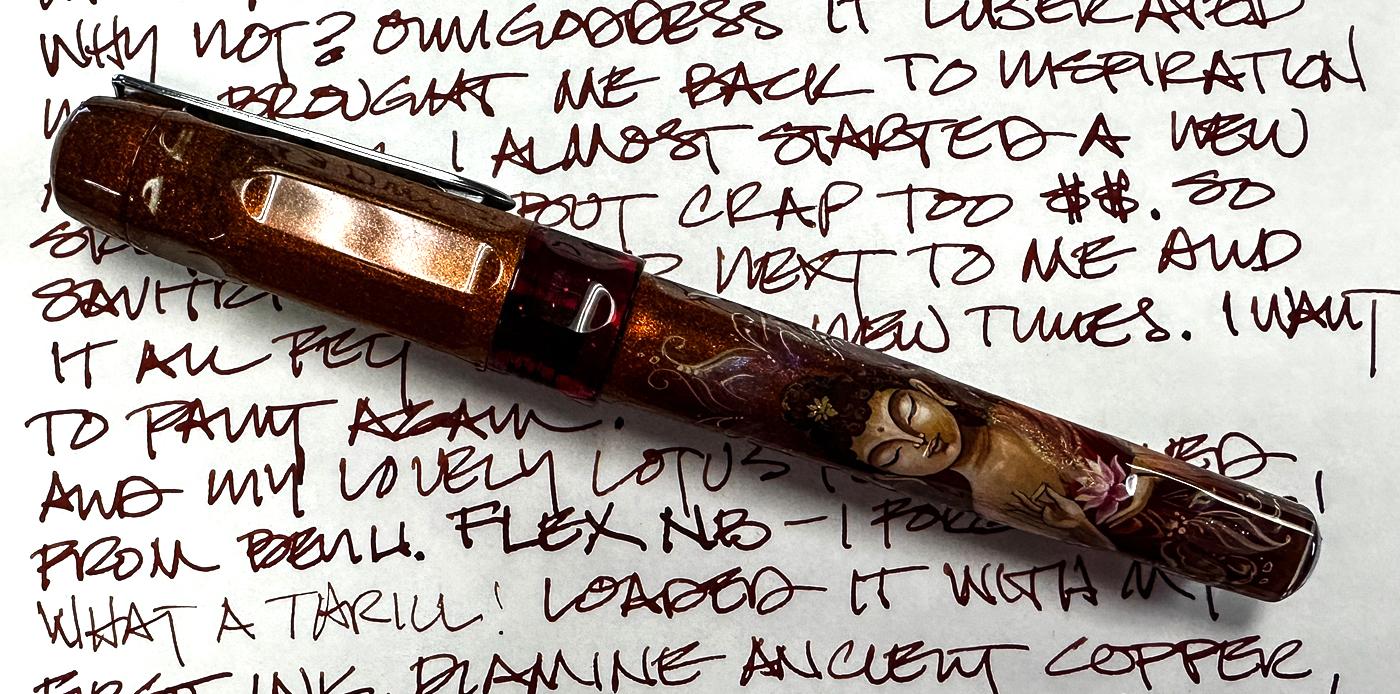 WHY NOT? OWM GODDESS IT LIBERATED
BROUGHT ME BACK TO INSPIRATION
I ALMOST STARTED A NEW
BOUT CRAP TOO $$. SO
NEXT TO ME AND
NEW TUNES. I WANT
IT ALL FELT
TO PAINT AGAIN.
AND MY LOVELY LOTUS
FROM BENU. FLEX NIB – I
WHAT A THRILL! LOADED IT WITH MY
FIRST INK, DIAMINE ANCIENT COPPER,